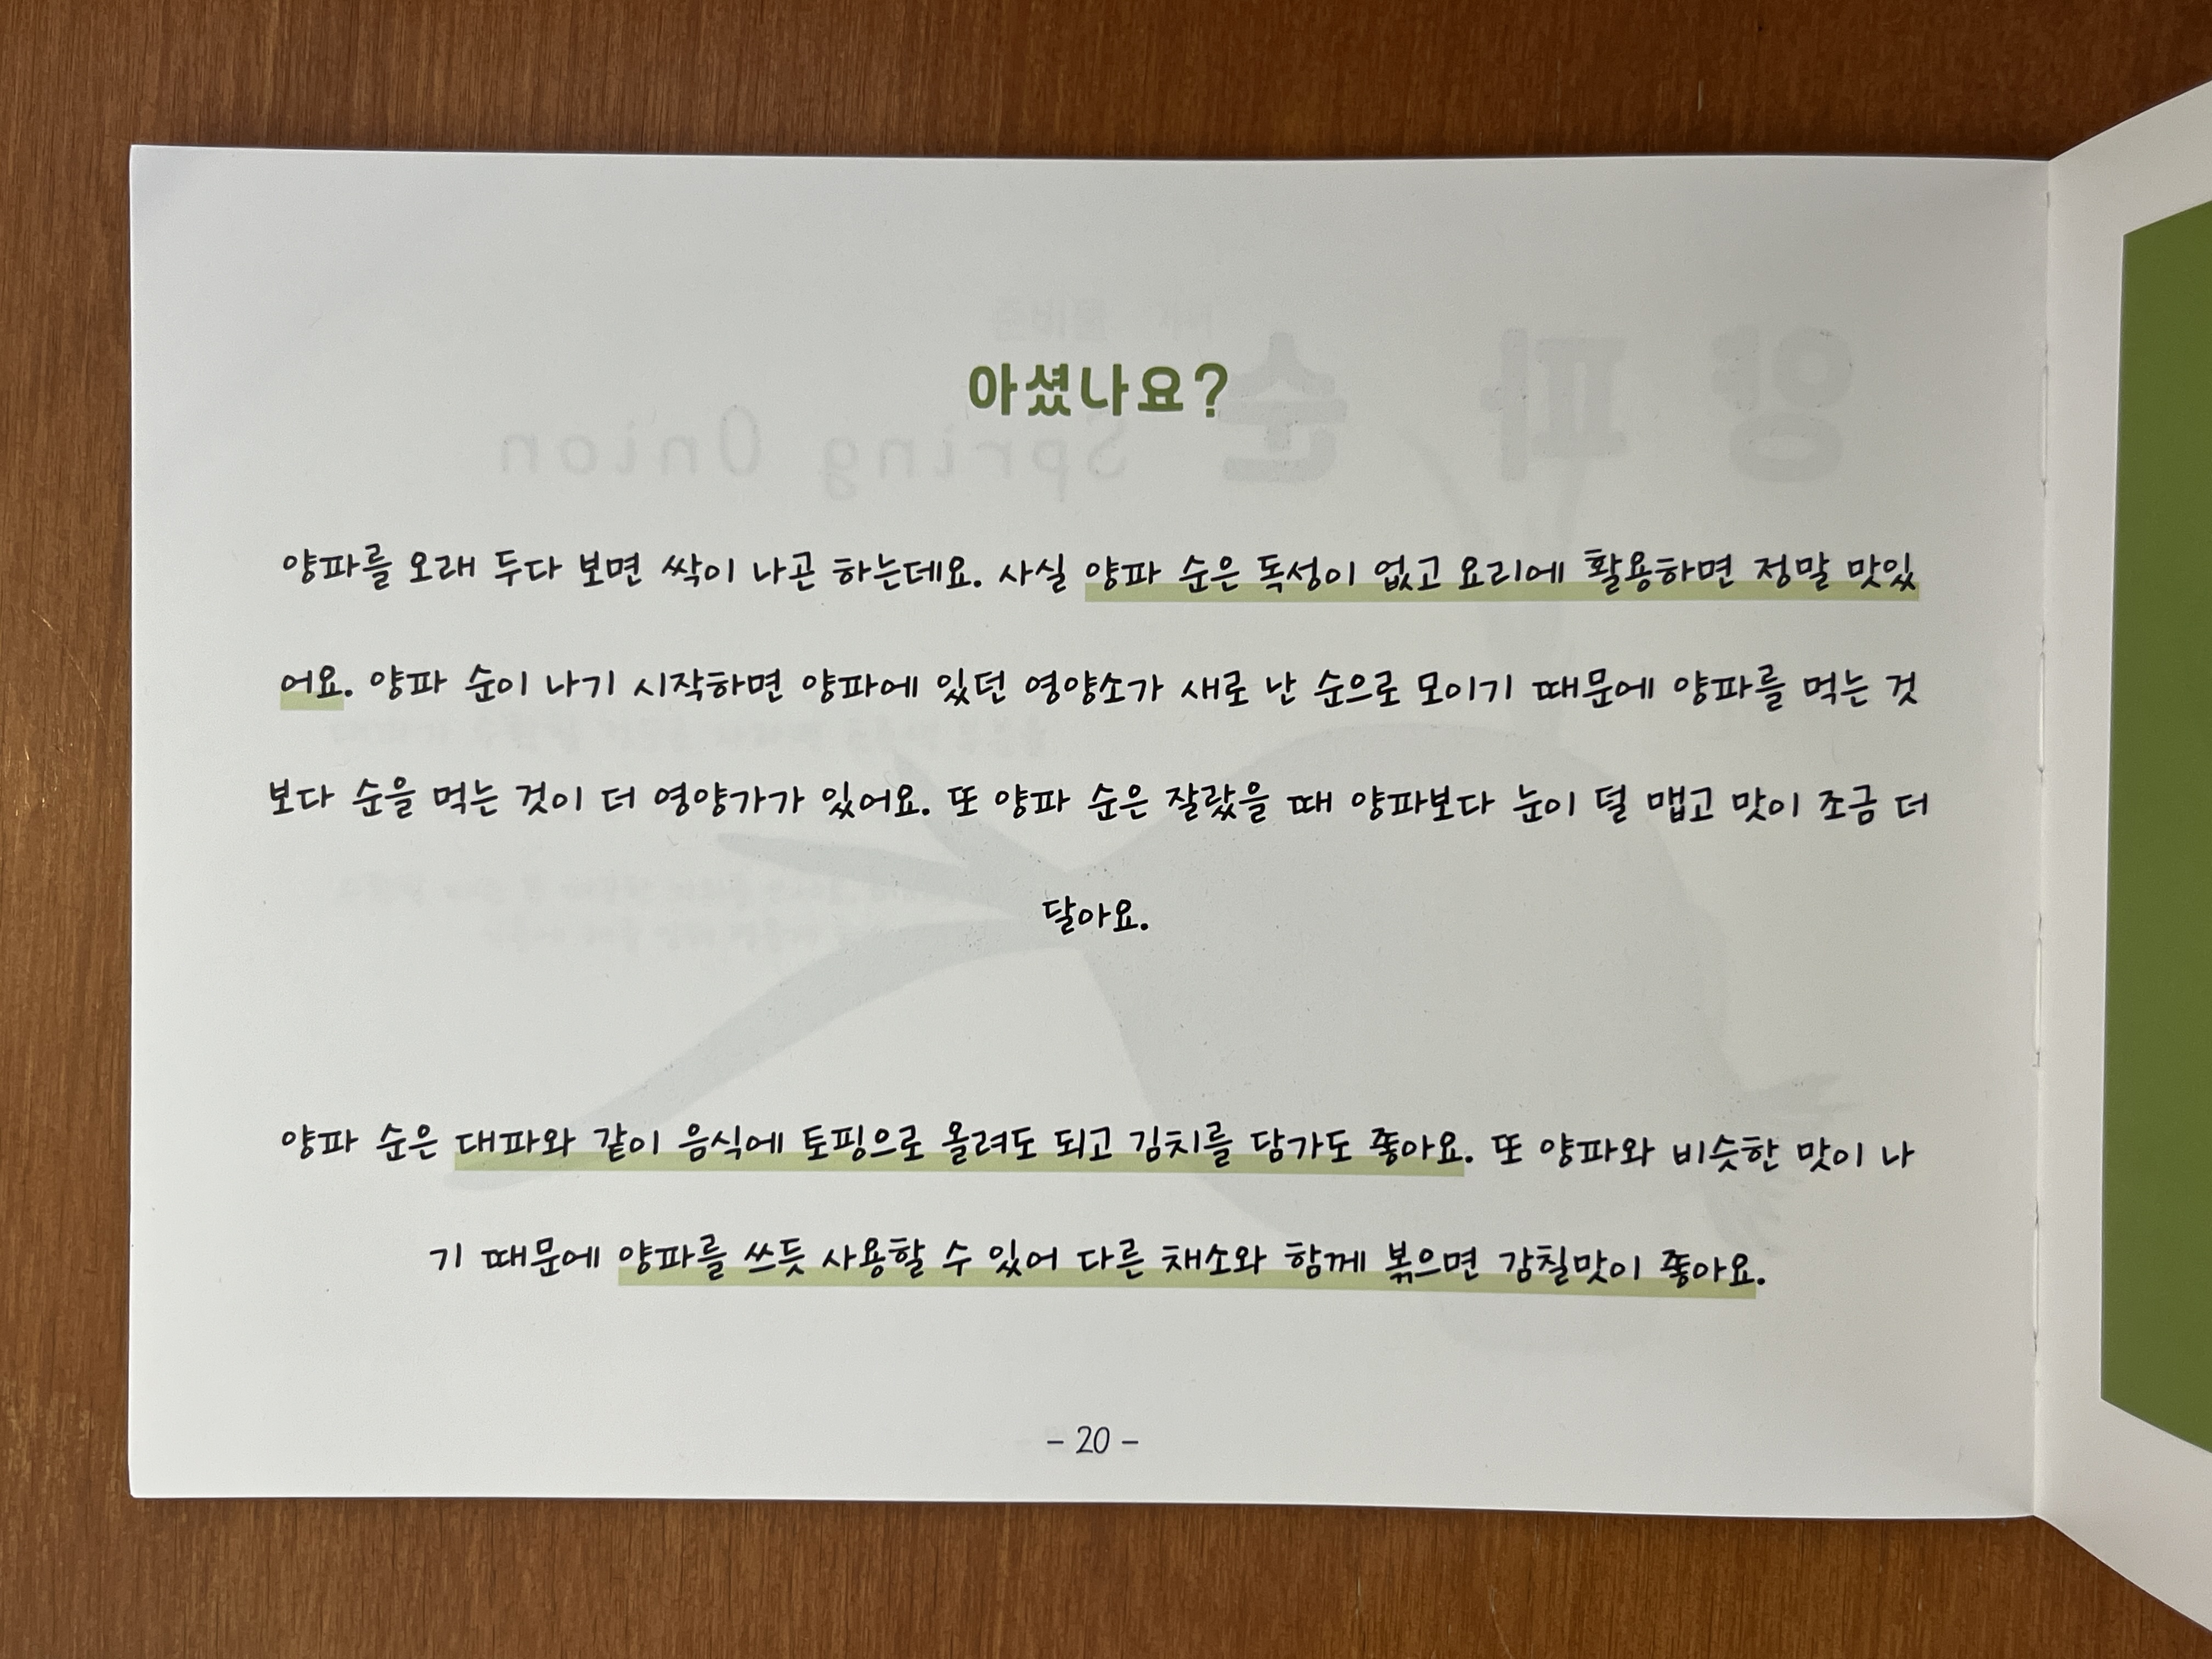 아셨나요?
양파를 오래 두다 보면 싹이 나곤 하는데요. 사실 양파 순은 독성이 없고 요리에 활용하면 정말 맛있
어요. 양파 순이 나기 시작하면 양파에 있던 영양소가 새로 난 순으로 모이기 때문에 양파를 먹는 것
보다 순을 먹는 것이 더 영양가가 있어요. 또 양파 순은 잘랐을 때 양파보다 눈이 덜 맵고 맛이 조금 더
달아요.
양파 순은 대파와 같이 음식에 토핑으로 올려도 되고 김치를 담가도 좋아요. 또 양파와 비슷한 맛이 나
기 때문에 양파를 쓰듯 사용할 수 있어 다른 채소와 함께 볶으면 감칠맛이 좋아요.
- 20 -
양 파 순
Spring Onion